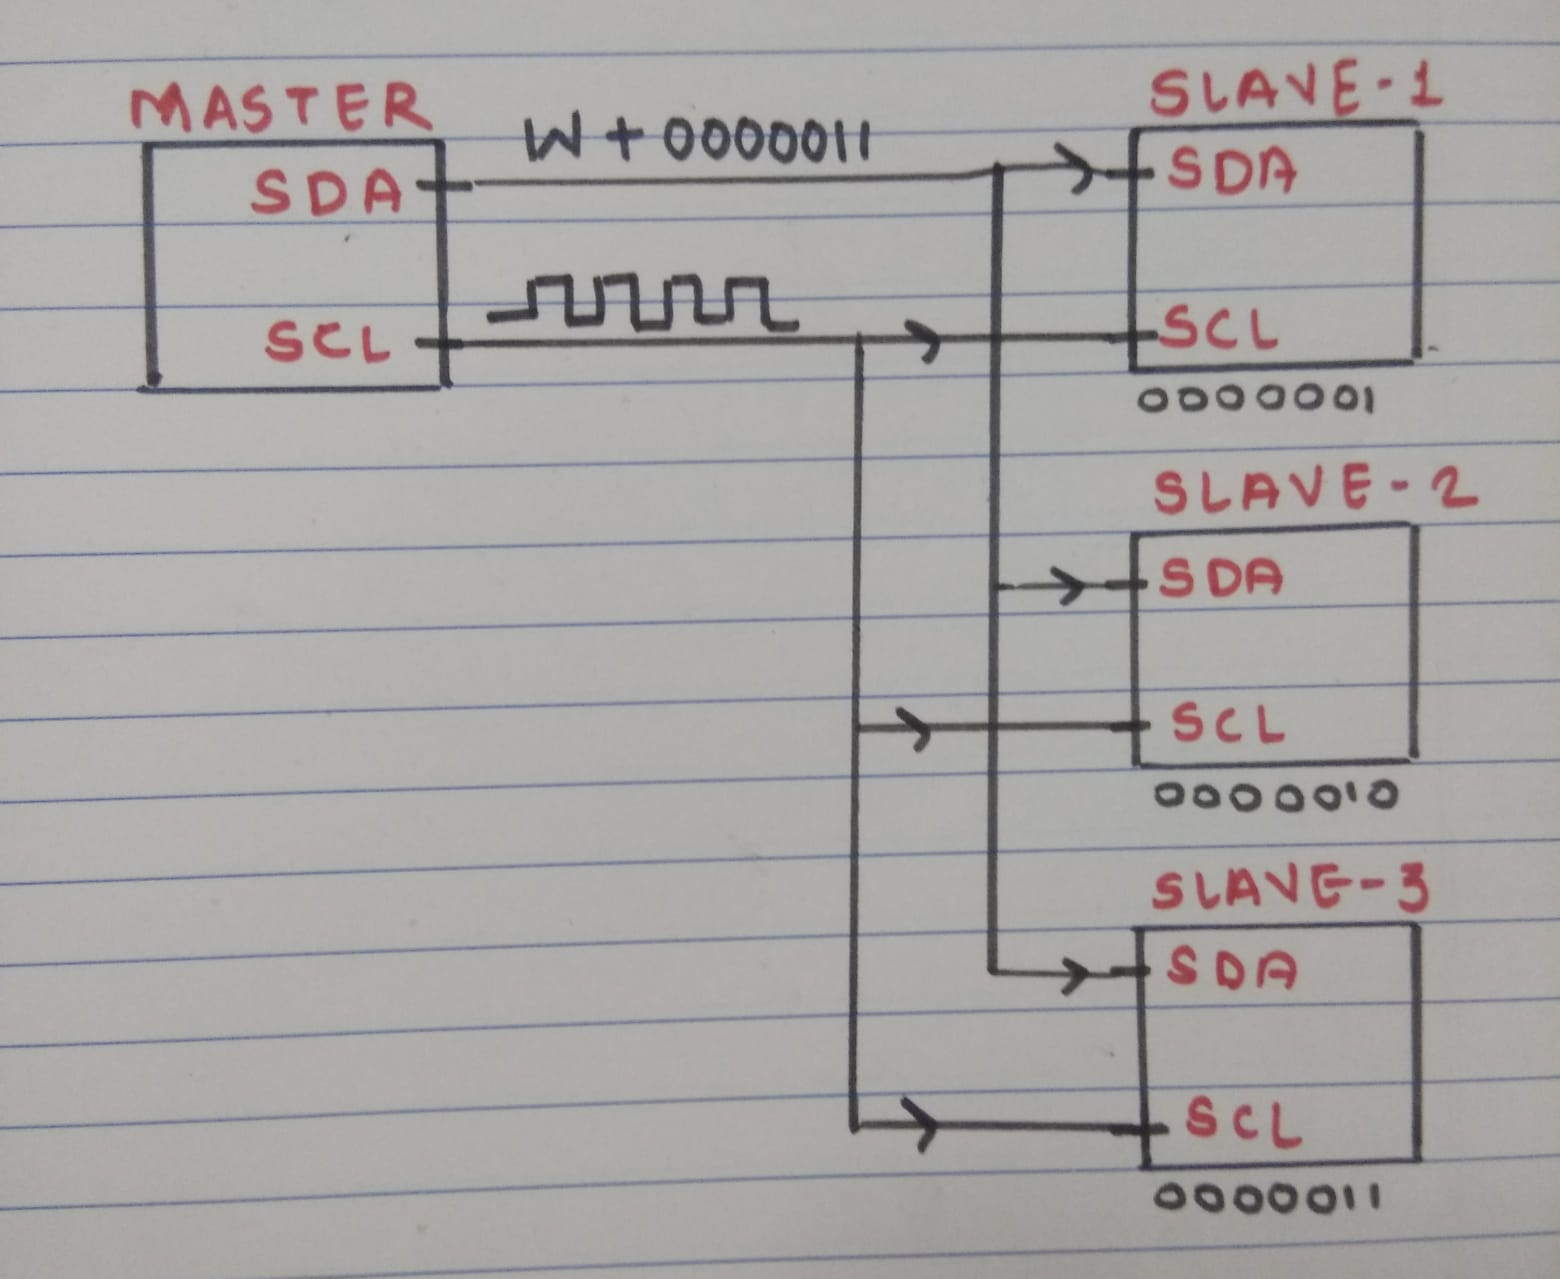 MASTER
SDA
SCL
W + 0000011
SLAVE-1
SDA
SCL
0000001
SLAVE-2
SDA
SCL
0000010
SLAVE-3
SDA
SCL
0000011